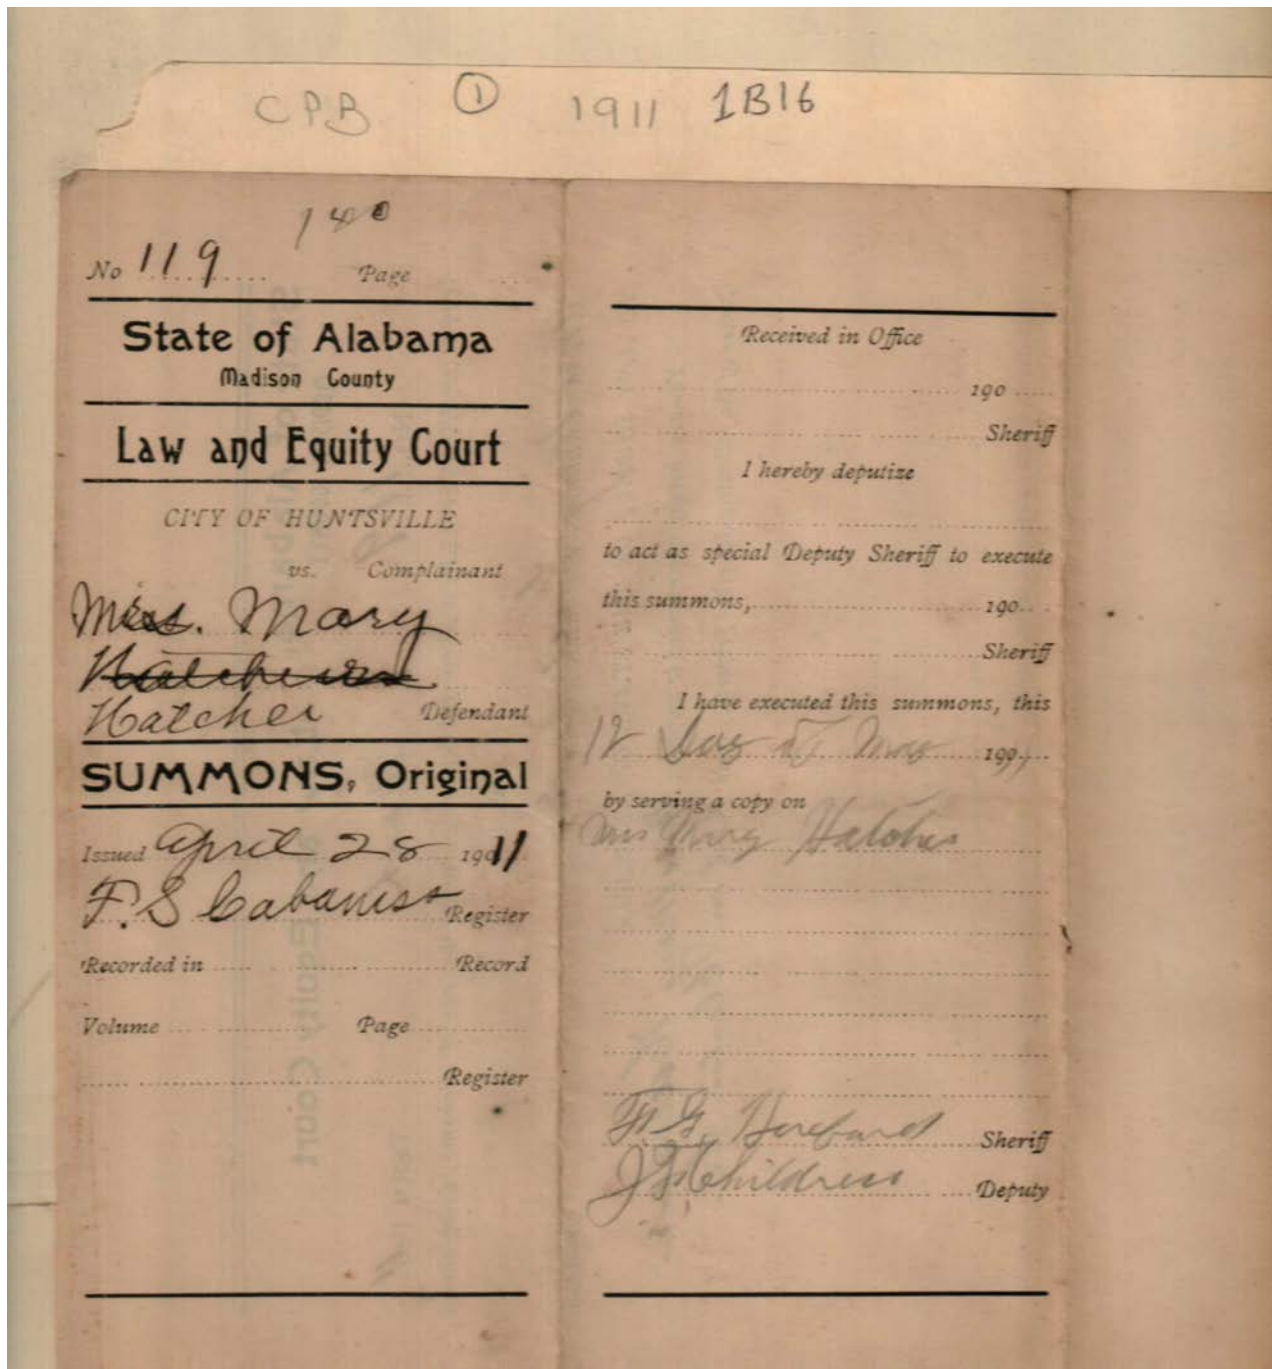 CPB ① 1911 1B16
140
No 119 Page
State of Alabama
Madison County
Law and Equity Court
CITY OF HUNTSVILLE
vs. Complainant
Mrs. Mary
Hatcher Defendant
SUMMONS, Original
Issued April 28 1911
F. S. Cabaniss Register
Recorded in Record
Volume Page
Register
Received in Office
190
Sheriff
I hereby deputize
to act as special Deputy Sheriff to execute
this summons, 190
Sheriff
I have executed this summons, this
12 day of May 191
by serving a copy on
Mrs Mary Hatcher
F. G. Sheriff
Childress Deputy